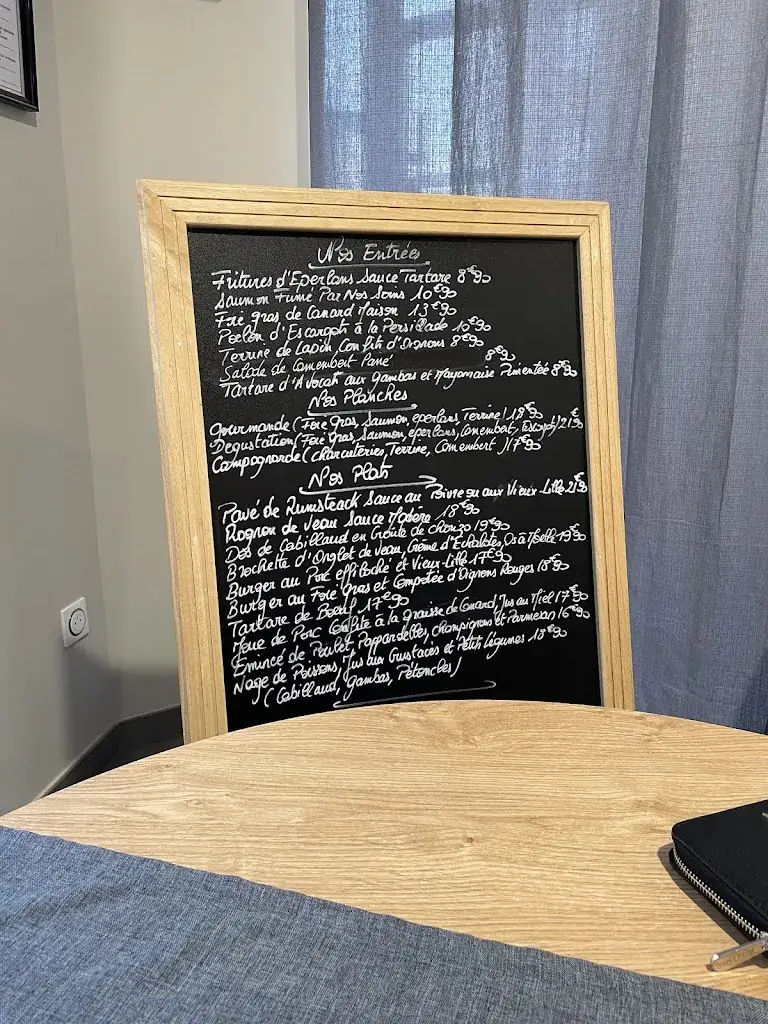 Nos Entrées
Fritures d'Eperlans Sauce Tartare 8€90
Saumon Fumé Par Nos Soins 10€90
Foie gras de Canard Maison 13€90
Poelon d'Escargots à la Persillade 10€90
Terrine de Lapin, Confit d'Oignons 8€90
Salade de Camembert Pané 8€90
Tartare d'Avocat aux gambas et Mayonnaise Pimentée 8€90
Nos Planches
Gourmande (Foie Gras, Saumon, eperlans, Terrine) 18€90
Degustation (Foie Gras, Saumon, eperlans, Camembert, Escargots) 21€90
Campagnarde (charcuteries, Terrine, Camembert) 17€90
Nos Plats
Pavé de Rumsteack Sauce au Poivre ou aux Vieux-Lille 21€90
Rognon de Veau Sauce Madère 18€90
Dos de Cabillaud en Croûte de chorizo 19€90
Brochette d'Onglet de Veau, Crème d'Echalotes, Os à Moelle 19€90
Burger au Porc effiloché et Vieux-Lille 17€90
Burger au Foie Gras et Compotée d'Oignons Rouges 18€90
Tartare de Boeuf 17€90
Joue de Porc Confite à la graisse de Canard, Jus au Miel 17€90
Emincé de Poulet, Pappardelles, champignons et Parmesan 16€90
Nage de Poissons, Jus aux Crustacés et Petits Légumes 18€90
(Cabillaud, gambas, Pétoncles)